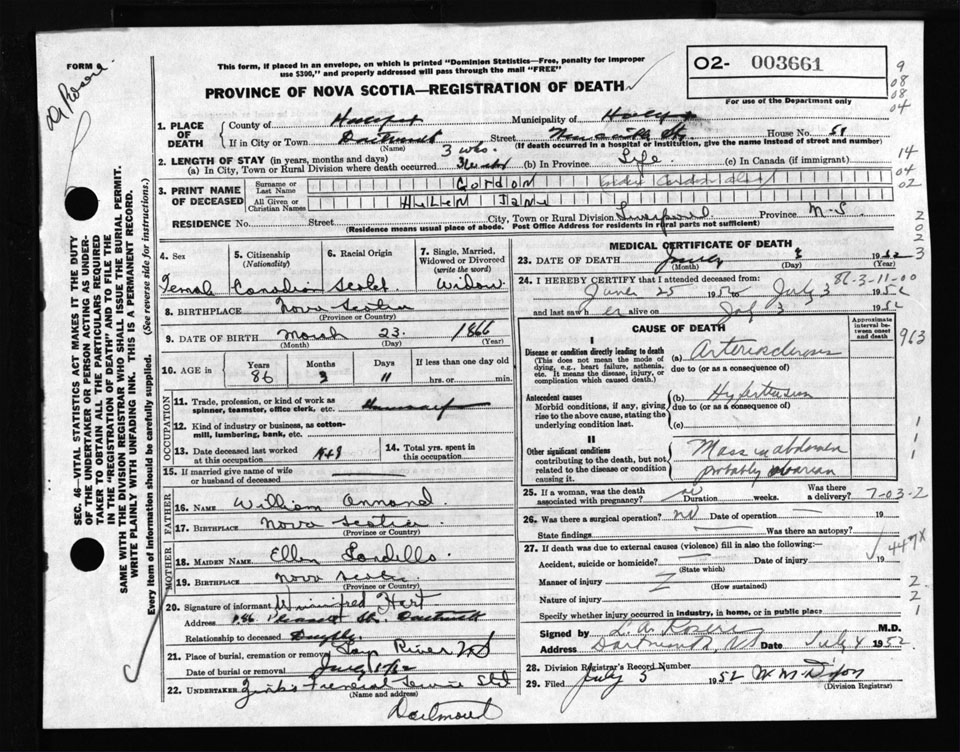 FORM 6
Dr Rosere.
This form, if placed in an envelope, on which is printed "Dominion Statistics—Free, penalty for improper
use $300," and properly addressed will pass through the mail "FREE"
O2- 003661
For use of the Department only
PROVINCE OF NOVA SCOTIA—REGISTRATION OF DEATH
9
08
08
04
14
04
02
2
0
2
3
SEC. 46—VITAL STATISTICS ACT MAKES IT THE DUTY
OF THE UNDERTAKER OR PERSON ACTING AS UNDER-
TAKER TO OBTAIN ALL THE PARTICULARS REQUIRED
IN THE "REGISTRATION OF DEATH" AND TO FILE THE
SAME WITH THE DIVISION REGISTRAR WHO SHALL ISSUE THE BURIAL PERMIT.
WRITE PLAINLY WITH UNFADING INK. THIS IS A PERMANENT RECORD.
Every item of information should be carefully supplied. (See reverse side for instructions.)
1. PLACE OF DEATH
County of Halifax Municipality of Halifax
If in City or Town Dartmouth Street House No. 51
(Name) (If death occurred in a hospital or institution, give the name instead of street and number)
2. LENGTH OF STAY (in years, months and days) 3 wks.
(a) In City, Town or Rural Division where death occurred 3 weeks (b) In Province Life (c) In Canada (if immigrant)
3. PRINT NAME OF DECEASED
Surname or Last Name GORDON
All Given or Christian Names HELEN JANE
RESIDENCE No. Street City, Town or Rural Division Liverpool Province N.S
(Residence means usual place of abode. Post Office Address for residents in rural parts not sufficient)
4. Sex Female
5. Citizenship (Nationality) Canadian
6. Racial Origin Scotch
7. Single, Married, Widowed or Divorced (write the word) Widow
8. BIRTHPLACE Nova Scotia
(Province or Country)
9. DATE OF BIRTH March 23 1866
(Month) (Day) (Year)
10. AGE in Years 86 Months 3 Days 11 If less than one day old hrs. or min.
OCCUPATION
11. Trade, profession, or kind of work as
spinner, teamster, office clerk, etc. Housewife
12. Kind of industry or business, as cotton-
mill, lumbering, bank, etc.
13. Date deceased last worked at this occupation 1949
14. Total yrs. spent in this occupation
15. If married give name of wife
or husband of deceased
FATHER
16. Name William Annand
17. Birthplace Nova Scotia
(Province or Country)
MOTHER
18. MAIDEN NAME Ellen
19. Birthplace Nova Scotia
(Province or Country)
20. Signature of informant Winnifred Hart
Address Dartmouth
Relationship to deceased Daughter
21. Place of burial, cremation or removal River NS
Date of burial or removal
22. UNDERTAKER Zink's Funeral Service Ltd
(Name and address)
Dartmouth
MEDICAL CERTIFICATE OF DEATH
23. DATE OF DEATH July 3 1952
(Month) (Day) (Year)
24. I HEREBY CERTIFY that I attended deceased from: 86-3-11-00
June 25 1952 to July 3 1952
and last saw her alive on July 3 1952
CAUSE OF DEATH
Approximate interval between onset and death
963
I
Disease or condition directly leading to death
(This does not mean the mode of
dying, e.g., heart failure, asthenia,
etc. It means the disease, injury, or
complication which caused death.)
(a) Arteriosclerosis
due to (or as a consequence of)
Antecedent causes
Morbid conditions, if any, giving
rise to the above cause, stating the
underlying condition last.
(b) Hypertension
due to (or as a consequence of)
(c)
II
Other significant conditions
contributing to the death, but not
related to the disease or condition
causing it.
Mass in abdomen
probably ovarian
1
1
1
25. If a woman, was the death associated with pregnancy? no Duration weeks. Was there a delivery? 7-03-2
26. Was there a surgical operation? No Date of operation 19
State findings Was there an autopsy?
27. If death was due to external causes (violence) fill in also the following:
447X
Accident, suicide or homicide? Date of injury 19
(State which)
Manner of injury
(How sustained)
Nature of injury
Specify whether injury occurred in industry, in home, or in public place
2
2
1
Signed by M.D.
Dartmouth, NS Date July 4 1952
28. Division Registrar's Record Number
29. Filed July 5 1952
(Division Registrar)